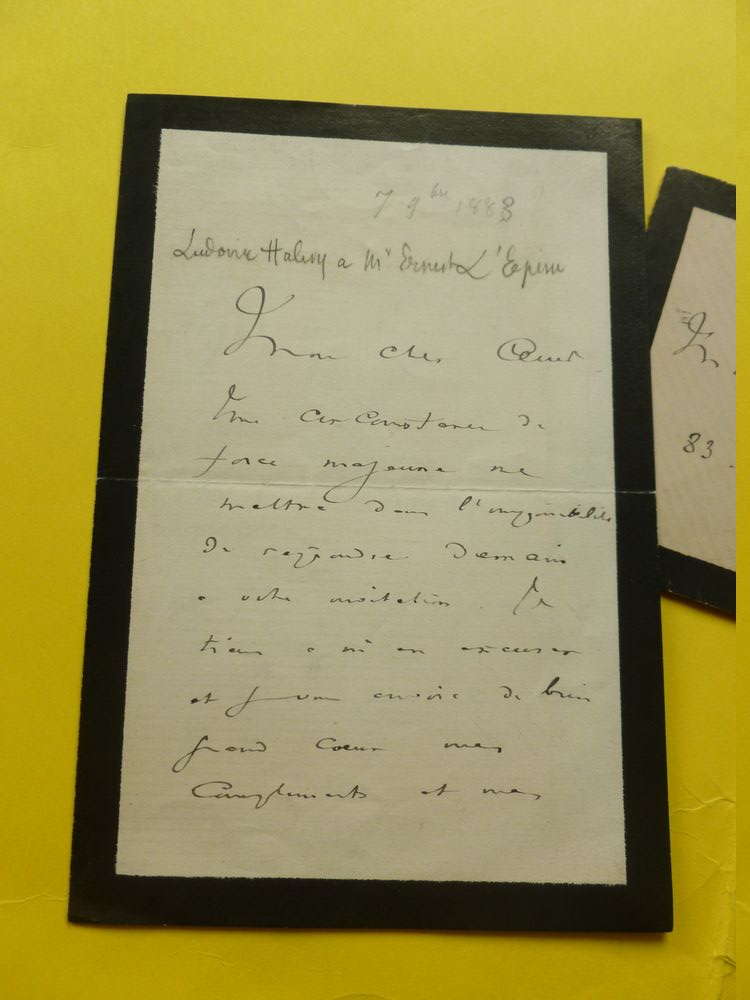 7 9bre 1883
Ludovic Halevy a Mr Ernest L'Epine
Mon cher Ami
Une circonstance de
force majeure me
mettra dans l'impossibilité
de repondre demain
a votre invitation. Je
tiens a m'en excuser
et je vous envoie de bien
grand coeur mes
Compliments et mes
M
83